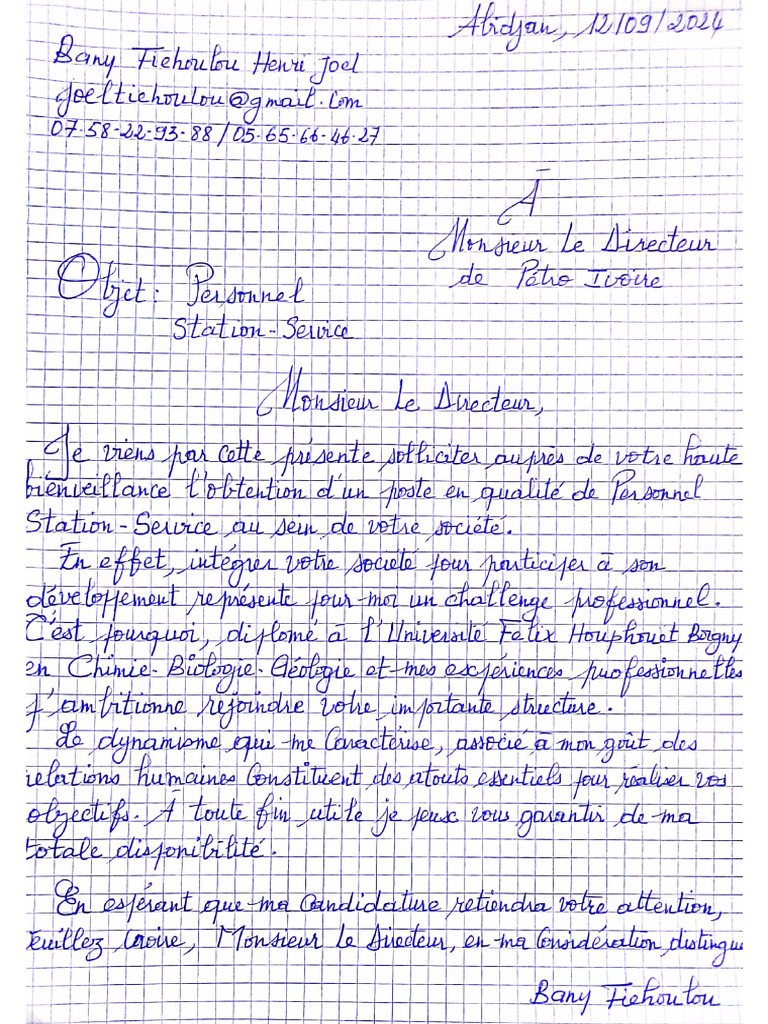 Abidjan, 12/09/2024
Bany Tiehoulou Henri Joel
joeltiehoulou@gmail.com
07-58-22-93-88/05-65-66-46-27
À
Monsieur Le Directeur
de Pétro Ivoire
Objet: Personnel
Station-Service
Monsieur Le Directeur,
Je viens par cette présente solliciter auprès de votre haute
bienveillance l'obtention d'un poste en qualité de Personnel
Station-Service au sein de votre société.
En effet, intégrer votre société pour participer à son
développement représente pour moi un challenge professionnel.
C'est pourquoi, diplomé à l'Université Felix Houphouet Boigny
en Chimie-Biologie-Géologie et mes expériences professionnelles
j'ambitionne rejoindre votre importante structure.
Le dynamisme qui me caractérise, associé à mon goût des
relations humaines constituent des atouts essentiels pour réaliser vos
objectifs. À toute fin utile je peux vous garantir de ma
totale disponibilité.
En espérant que ma candidature retiendra votre attention,
veuillez croire, Monsieur Le Directeur, en ma considération distingue
Bany Tiehoulou